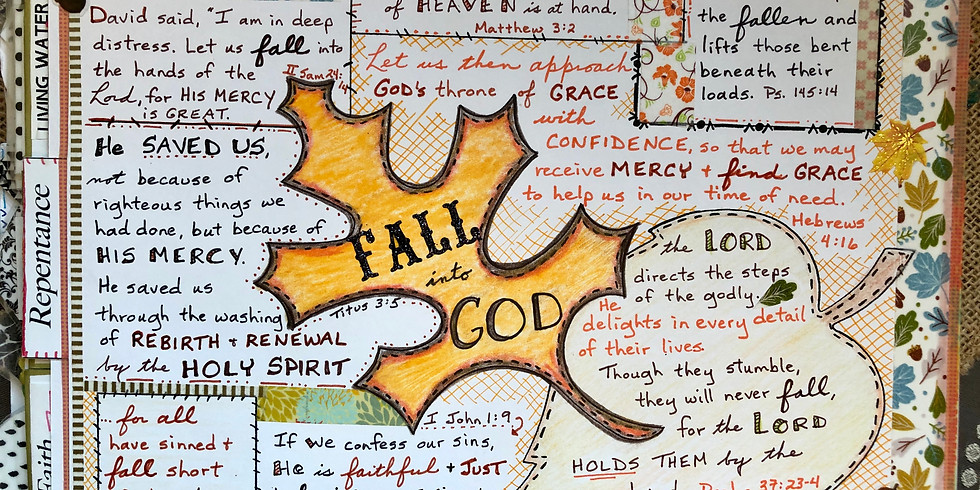 LIVING WATER
Repentance
Faith
David said, "I am in deep
distress. Let us fall into
the hands of the
Lord, for HIS MERCY
is GREAT.
II Sam 24:
14
of HEAVEN is at hand.
Matthew 3:2
the fallen and
lifts those bent
beneath their
loads. Ps. 145:14
Let us then approach
GOD'S throne of GRACE
with
CONFIDENCE, so that we may
receive MERCY + find GRACE
to help us in our time of need.
Hebrews
4:16
He SAVED US,
not because of
righteous things we
had done, but because of
HIS MERCY.
He saved us
through the washing
of REBIRTH + RENEWAL
by the HOLY SPIRIT
Titus 3:5
FALL
into
GOD
the LORD
directs the steps
of the godly.
He
delights in every detail
of their lives.
Though they stumble,
they will never fall,
for the LORD
HOLDS THEM by the
37:23-4
... for all
have sinned +
fall short
I John 1:9
If we confess our sins,
He is faithful + JUST